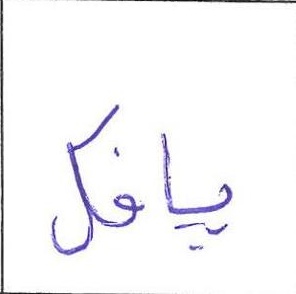 يافكل